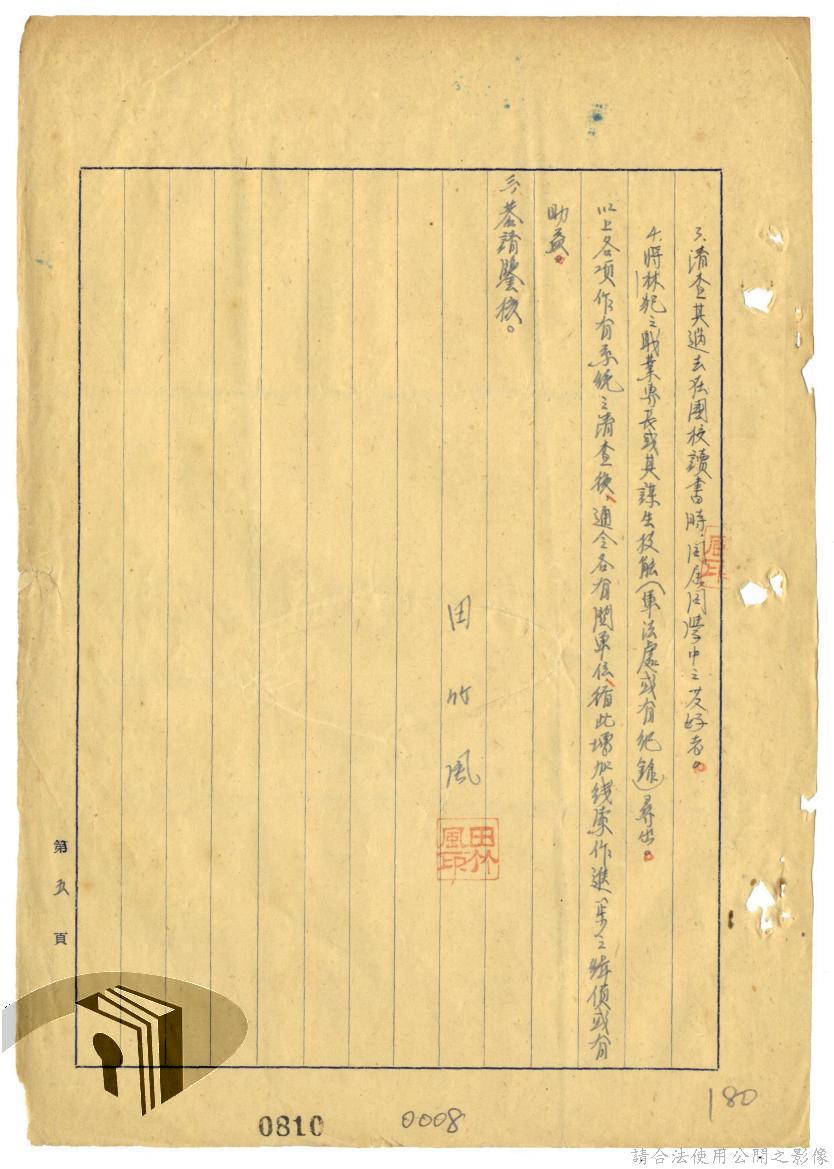 3、清查其過去在團校讀書時、同居同學中之友好者。
4、將林犯之職業專長或其謀生技能（軍法處或有紀錄）尋出。
以上各項作有系統之清查後、通令各有關單位、循此增加线索作進一步之緝偵或有
助益。
三、恭請鑒核。
田竹風
田竹風印
風印
第五頁
0810
0008
180
請合法使用公開之影像